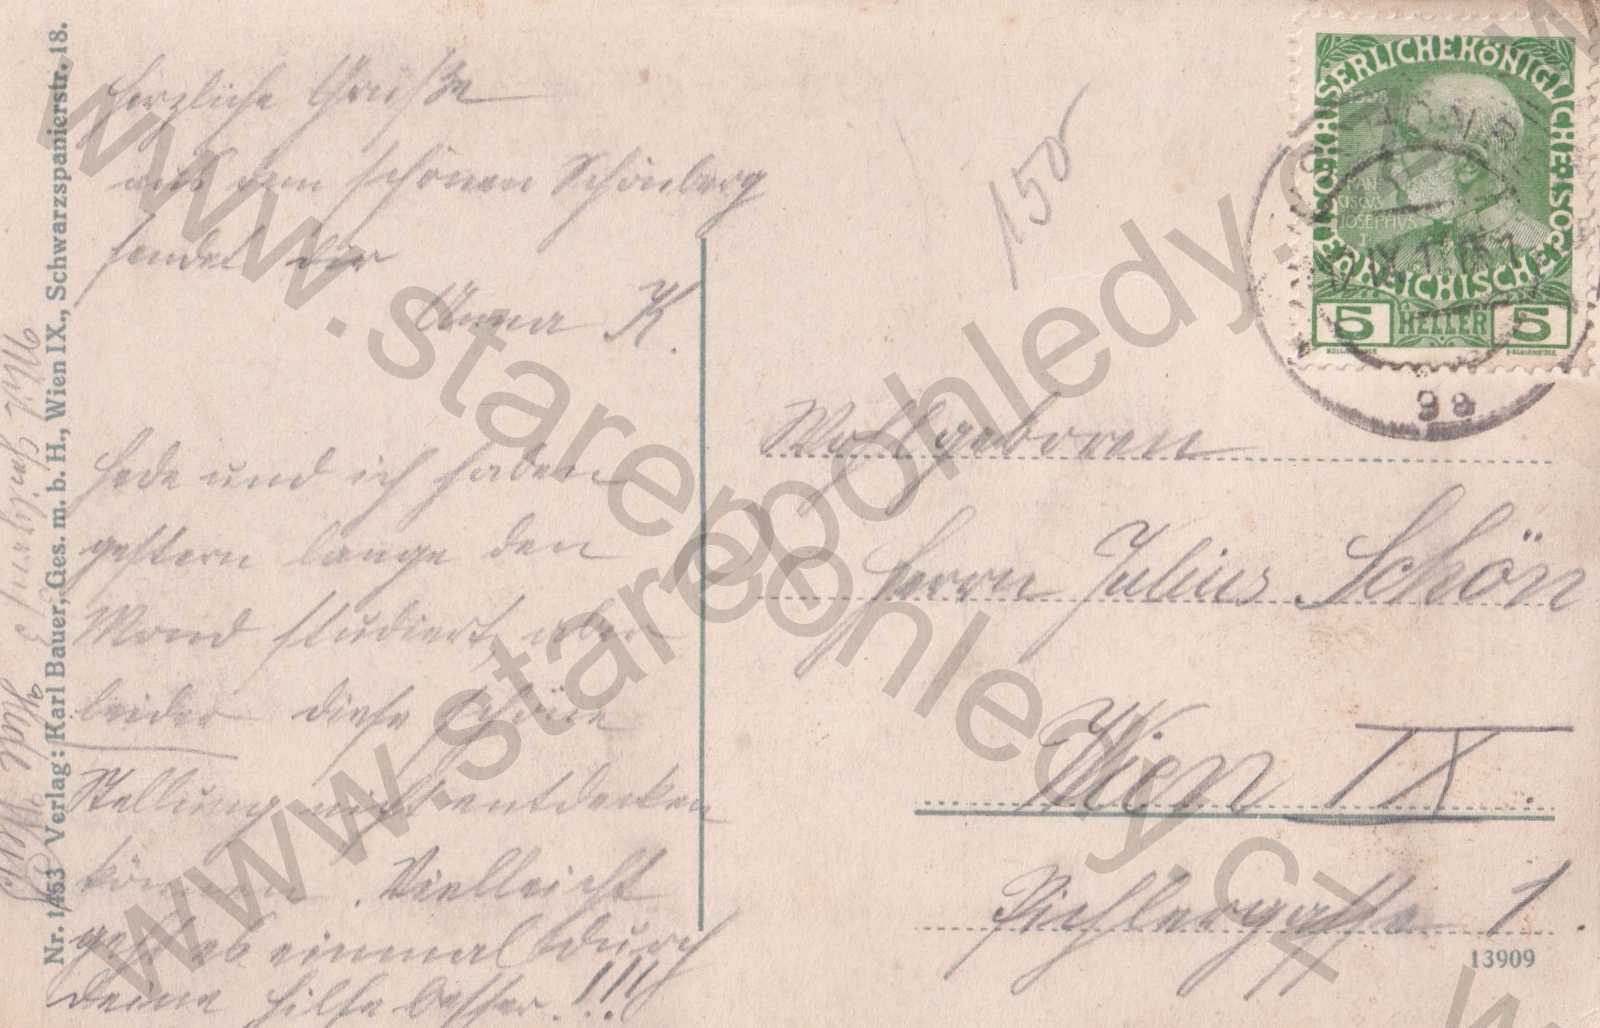 Herzliche Grüße
aus dem schönen Schönberg
sendet dir
Anna K.
Hede und ich haben
gestern lange den
Mond studiert, aber
leider diese schöne
Stellung nicht entdecken
können. Vielleicht
geht es einmal durch
deine Hilfe besser!!!
Nr. 1463 Verlag: Karl Bauer, Ges. m. b. H., Wien IX., Schwarzspanierstr. 18.
150
KAISERLICHE KÖNIGLICHE
ÖSTERREICHISCHE
1908
FRAN
CISCVS
IOSEPHVS
I
5 HELLER 5
Wohlgeboren
Herrn Julius Schön
Wien IX.
Pichlergasse 1.
13909
www.starepohledy.cz
www.starepohledy.cz